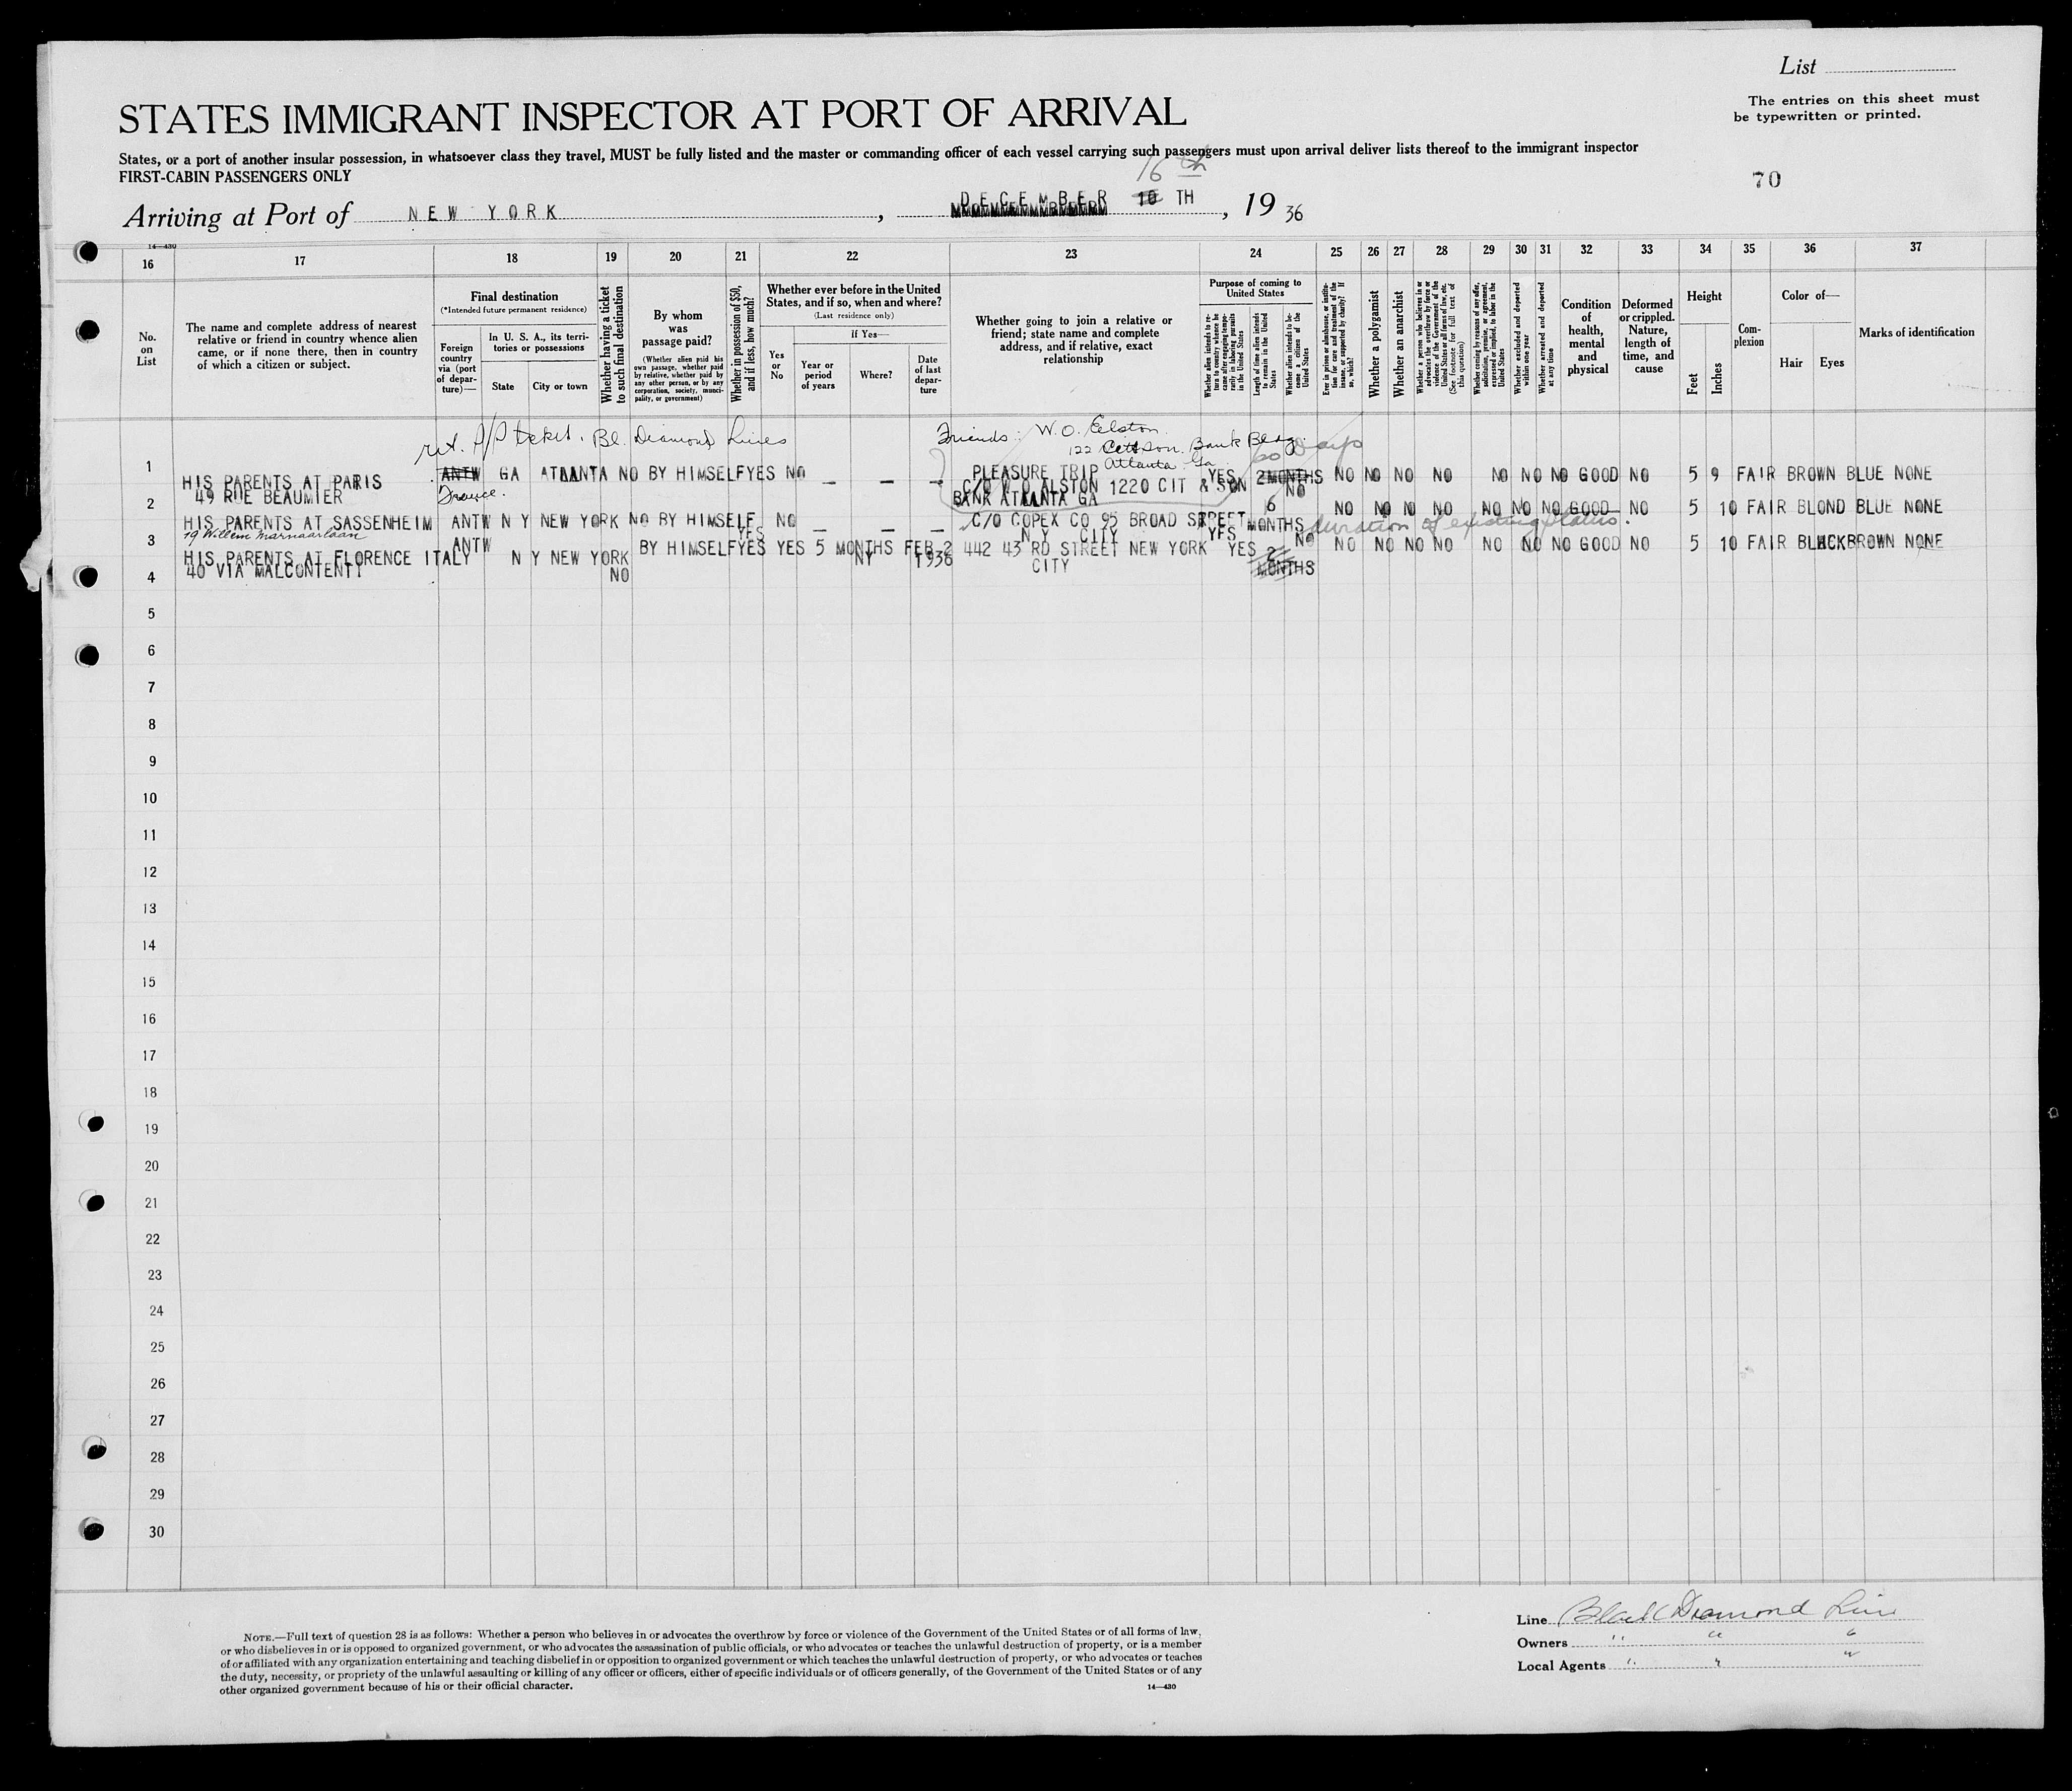 List
The entries on this sheet must
be typewritten or printed.
STATES IMMIGRANT INSPECTOR AT PORT OF ARRIVAL
States, or a port of another insular possession, in whatsoever class they travel, MUST be fully listed and the master or commanding officer of each vessel carrying such passengers must upon arrival deliver lists thereof to the immigrant inspector
FIRST-CABIN PASSENGERS ONLY
70
16 th
Arriving at Port of NEW YORK, DECEMBER 10 TH, 19 36
14—430
16 17 18 19 20 21 22 23 24 25 26 27 28 29 30 31 32 33 34 35 36 37
No. on List
The name and complete address of nearest relative or friend in country whence alien came, or if none there, then in country of which a citizen or subject.
Final destination
(*Intended future permanent residence)
Foreign country via (port of departure)—
In U. S. A., its territories or possessions
State
City or town
Whether having a ticket to such final destination
By whom was passage paid?
(Whether alien paid his own passage, whether paid by relative, whether paid by any other person, or by any corporation, society, municipality, or government)
Whether in possession of $50, and if less, how much?
Whether ever before in the United States, and if so, when and where?
(Last residence only)
Yes or No
If Yes—
Year or period of years
Where?
Date of last departure
Whether going to join a relative or friend; state name and complete address, and if relative, exact relationship
Purpose of coming to United States
Whether alien intends to return to country whence he came after engaging temporarily in laboring pursuits in the United States
Length of time alien intends to remain in the United States
Whether alien intends to become a citizen of the United States
Ever in prison or almshouse, or institution for care and treatment of the insane, or supported by charity? If so, which?
Whether a polygamist
Whether an anarchist
Whether a person who believes in or advocates the overthrow by force or violence of the Government of the United States or all forms of law, etc. (See footnote for full text of this question)
Whether coming by reasons of any offer, solicitation, promise, or agreement, expressed or implied, to labor in the United States
Whether excluded and deported within one year
Whether arrested and deported at any time
Condition of health, mental and physical
Deformed or crippled. Nature, length of time, and cause
Height
Feet
Inches
Complexion
Color of—
Hair
Eyes
Marks of identification
ticket. Bl. Diamond Lines
Friends: W.O. Elston
122 Bank Bldg.
Atlanta Ga.
60 Days
1 HIS PARENTS AT PARIS ANTW GA ATLANTA NO BY HIMSELF YES NO — — — PLEASURE TRIP YES 2 MONTHS NO NO NO NO NO NO NO NO GOOD NO 5 9 FAIR BROWN BLUE NONE
49 RUE BEAUMIER France. C/O W O ALSTON 1220 CIT & SON
BANK ATLANTA GA
2 HIS PARENTS AT SASSENHEIM ANTW N Y NEW YORK NO BY HIMSELF YES NO — — — C/O COPEX CO 95 BROAD STREET YES 6 MONTHS NO NO NO NO NO NO NO NO GOOD NO 5 10 FAIR BLOND BLUE NONE
19 Willem Marnaarlaan N Y CITY duration of existing status.
3 HIS PARENTS AT FLORENCE ITALY ANTW N Y NEW YORK NO BY HIMSELF YES YES 5 MONTHS NY FEB 2 1936 442 43 RD STREET NEW YORK YES 2 MONTHS NO NO NO NO NO NO NO GOOD NO 5 10 FAIR BLACK BROWN NONE
40 VIA MALCONTENTI CITY
4
5
6
7
8
9
10
11
12
13
14
15
16
17
18
19
20
21
22
23
24
25
26
27
28
29
30
NOTE.—Full text of question 28 is as follows: Whether a person who believes in or advocates the overthrow by force or violence of the Government of the United States or of all forms of law,
or who disbelieves in or is opposed to organized government, or who advocates the assassination of public officials, or who advocates or teaches the unlawful destruction of property, or is a member
of or affiliated with any organization entertaining and teaching disbelief in or opposition to organized government or which teaches the unlawful destruction of property, or who advocates or teaches
the duty, necessity, or propriety of the unlawful assaulting or killing of any officer or officers, either of specific individuals or of officers generally, of the Government of the United States or of any
other organized government because of his or their official character.
14—430
Line Black Diamond Line
Owners " " "
Local Agents " " "